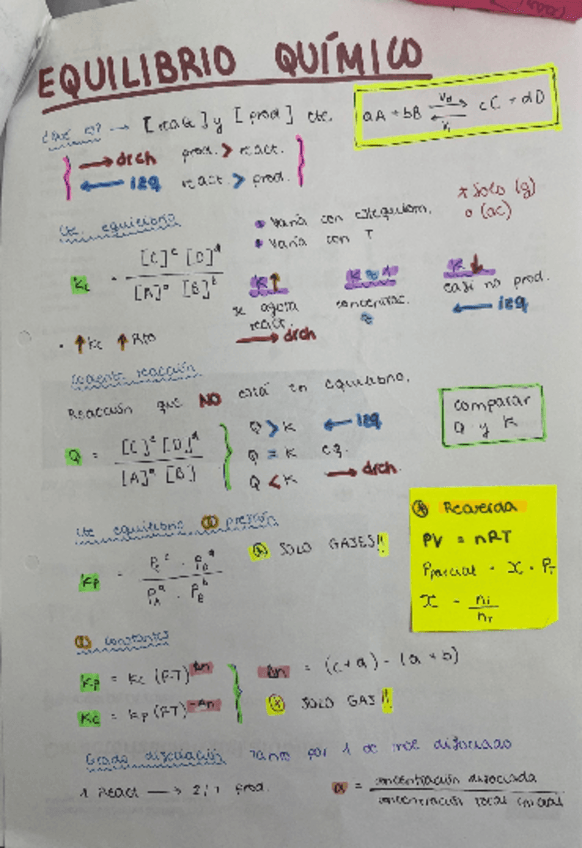 EQUILIBRIO QUÍMICO
¿Qué es? → [react] y [prod] cte.
aA + bB ⇄ cC + dD
Vd
Vi
→ drch prod. > react.
← izq react > prod.
Cte equilibrio
• Varía con estequiom.
• Varía con T
* SOLO (g)
o (ac)
Kc = [C]^c [D]^d / [A]^a [B]^b
K↑
se agota
react.
→ drch
K≈1
concentrac.
≈
K↓
casi no prod.
← izq
• ↑Kc ↑Rto
Cociente reacción
Reacción que NO está en equilibrio.
Q = [C]^c [D]^d / [A]^a [B]
Q > K ← izq
Q = K eq.
Q < K → drch.
comparar
Q y K
Cte equilibrio presión
Kp = Pc^c · PD^d / PA^a · PB^b
* SOLO GASES!!
* Recuerda
PV = nRT
Pparcial = X · PT
X = ni / nT
constantes
Kp = Kc (RT)^Δn
Kc = Kp (RT)^-Δn
Δn = (c+d) - (a+b)
* SOLO GAS!!
Grado disociación Tanto por 1 de mol disociado
1 React → 2/+ prod.
α = concentración disociada / concentración total inicial